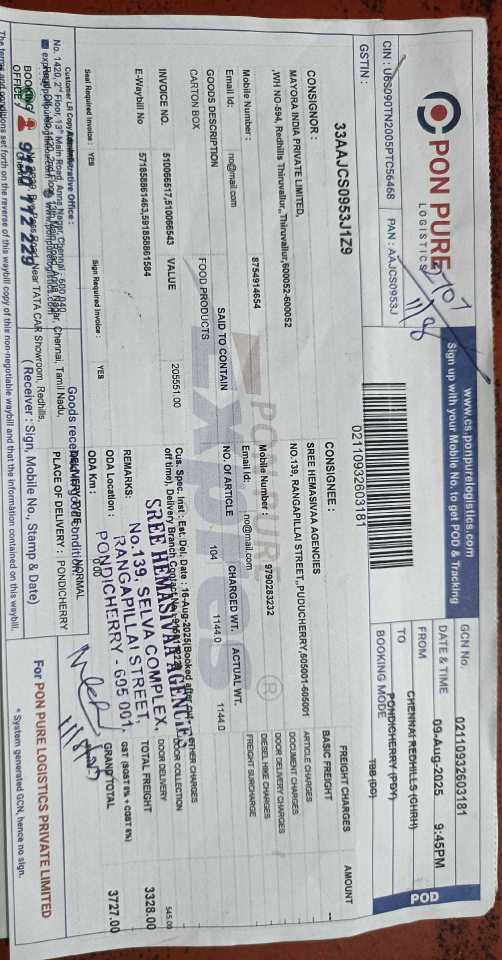 PON PURE
LOGISTICS
www.cs.ponpurelogistics.com
Sign up with your Mobile No. to get POD & Tracking
POD
CIN : U6S090TN2005PTC56468
PAN : AAJCS0953J
GSTIN :
33AAJCS0953J1Z9
02110932603181
GCN No. 02110932603181
DATE & TIME 09-Aug-2025 9:45PM
FROM CHENNAI REDHILLS (GHRH)
TO PONDICHERRY (PDY)
BOOKING MODE TBB (DD)
CONSIGNOR :
MAYORA INDIA PRIVATE LIMITED,
,WH NO-594, Redhills Thiruvallur,,Thiruvallur,600052-600052
Mobile Number : 8754914654
Email Id: no@mail.com
CONSIGNEE :
SREE HEMASIVAA AGENCIES
NO.139, RANGAPILLAI STREET,,PUDUCHERRY,605001-605001
Mobile Number : 9790283232
Email Id: no@mail.com
GOODS DESCRIPTION SAID TO CONTAIN NO. OF ARTICLE CHARGED WT. ACTUAL WT.
CARTON BOX FOOD PRODUCTS 104 1144.0 1144.0
INVOICE NO. 510066517,510066543 VALUE 205551.00
E-Waybill No 571858861463,591858861584
Cus. Spec. Inst : Est. Del. Date : 16-Aug-2025(Booked after cut
off time), Delivery Branch Contact No
REMARKS:
ODA Location :
ODA Km : 0.0
SREE HEMASIVAA AGENCIES
No.139, SELVA COMPLEX,
RANGAPILLAI STREET,
PONDICHERRY - 605 001.
FREIGHT CHARGES AMOUNT
BASIC FREIGHT --
ARTICLE CHARGES
DOCUMENT CHARGES
DOOR DELIVERY CHARGES
DIESEL HIKE CHARGES
FREIGHT SURCHARGE
OTHER CHARGES
DOOR COLLECTION
DOOR DELIVERY 545.00
TOTAL FREIGHT 3328.00
GST (SGST 6% + CGST 6%)
GRAND TOTAL 3727.00
Seal Required Invoice : YES
Sign Required Invoice : YES
Customer LR Copy
Administrative Office :
No. 1420, 2nd Floor, 13th Main Road, Anna Nagar, Chennai - 600 040
DELIVERY TYPE : NORMAL
PLACE OF DELIVERY : PONDICHERRY
BOOKING OFFICE
Near TATA CAR Showroom, Redhills,
Chennai, Tamil Nadu,
9350 112 229
(Receiver : Sign, Mobile No., Stamp & Date)
For PON PURE LOGISTICS PRIVATE LIMITED
* System generated GCN, hence no sign.
The terms and conditions set forth on the reverse of this waybill copy of this non-negotiable waybill and that the information contained on this waybill.
PON PURE
Express